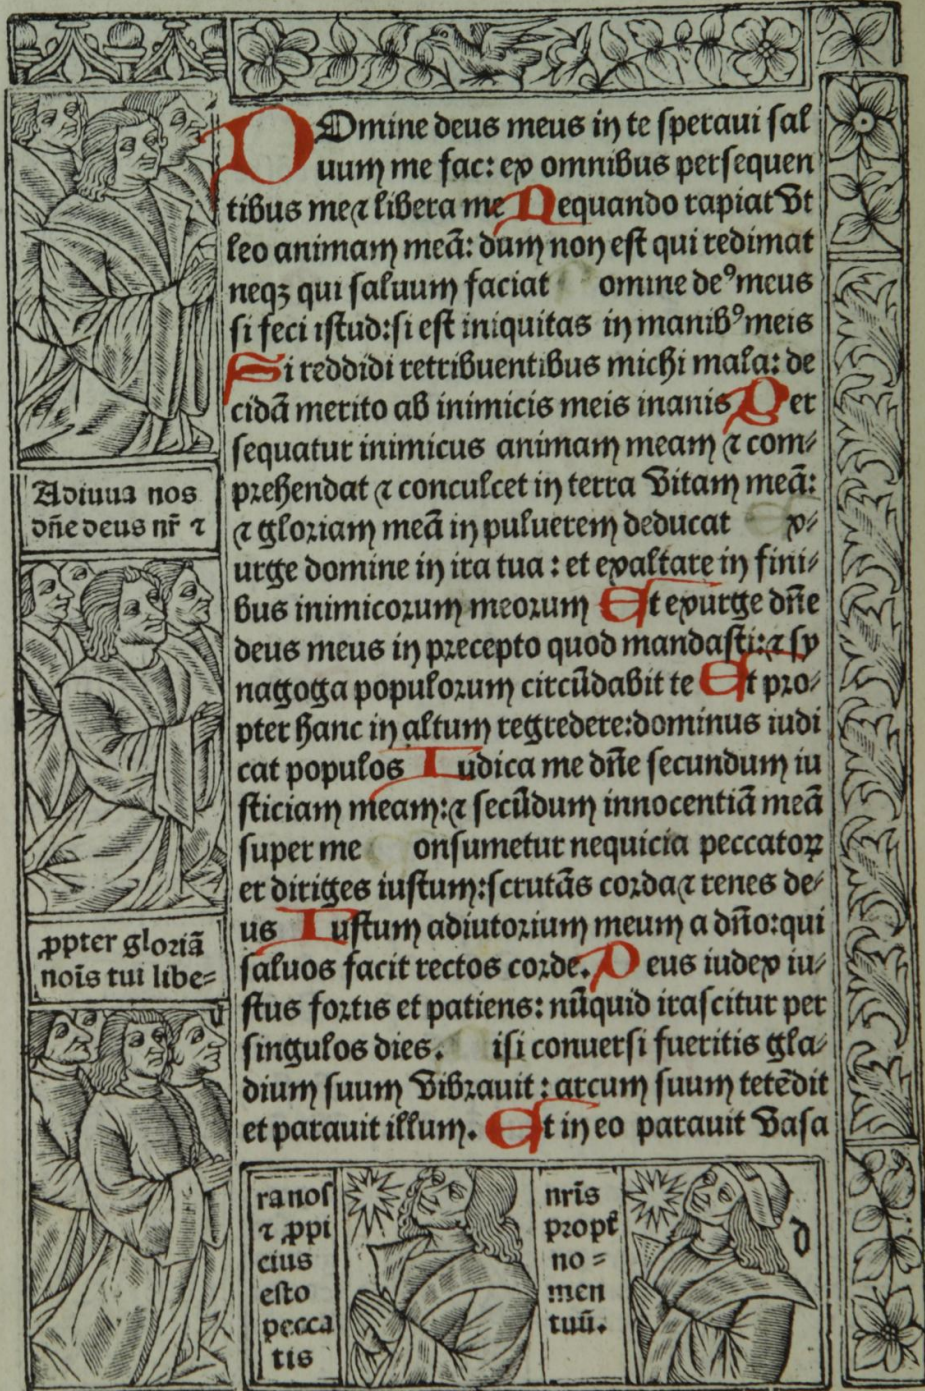 DOmine deus meus in te speraui sal
uum me fac: ex omnibus persequen
tibus me ⁊ libera me Nequando rapiat vt
leo animam meā: dum non est qui redimat
neqꝫ qui saluum faciat omine deꝰ meus
si feci istud: si est iniquitas in manibꝰ meis
Si reddidi retribuentibus michi mala: de
cidā merito ab inimicis meis inanis Per
sequatur inimicus animam meam ⁊ com⸗
prehendat ⁊ conculcet in terra vitam meā:
⁊ gloriam meā in puluerem deducat x⸗
urge domine in ira tua : et exaltare in fini⸗
bus inimicorum meorum Et exurge dn̄e
deus meus in precepto quod mandasti: ⁊ sy
nagoga populorum circūdabit te Et pro⸗
pter hanc in altum regredere: dominus iudi
cat populos Iudica me dn̄e secundum iu
sticiam meam: ⁊ secūdum innocentiā meā
super me onsumetur nequicia peccatoꝝ
et diriges iustum: scrutās corda ⁊ renes de⸗
us Iustum adiutorium meum a dn̄o: qui
saluos facit rectos corde. Deus iudex iu⸗
stus fortis et patiens: nūquid irascitur per
singulos dies. isi conuersi fueritis gla⸗
dium suum vibrauit : arcum suum tetēdit
et parauit illum. Et in eo parauit vasa
Adiuua nos
dn̄e deus nr̄ ⁊
ꝓpter gloriā
nōis tui libe⸗
ra nos
⁊ ꝓpi
cius
esto
pecca
tis
nrīs
propt̄
no⸗
men
tuū.
d